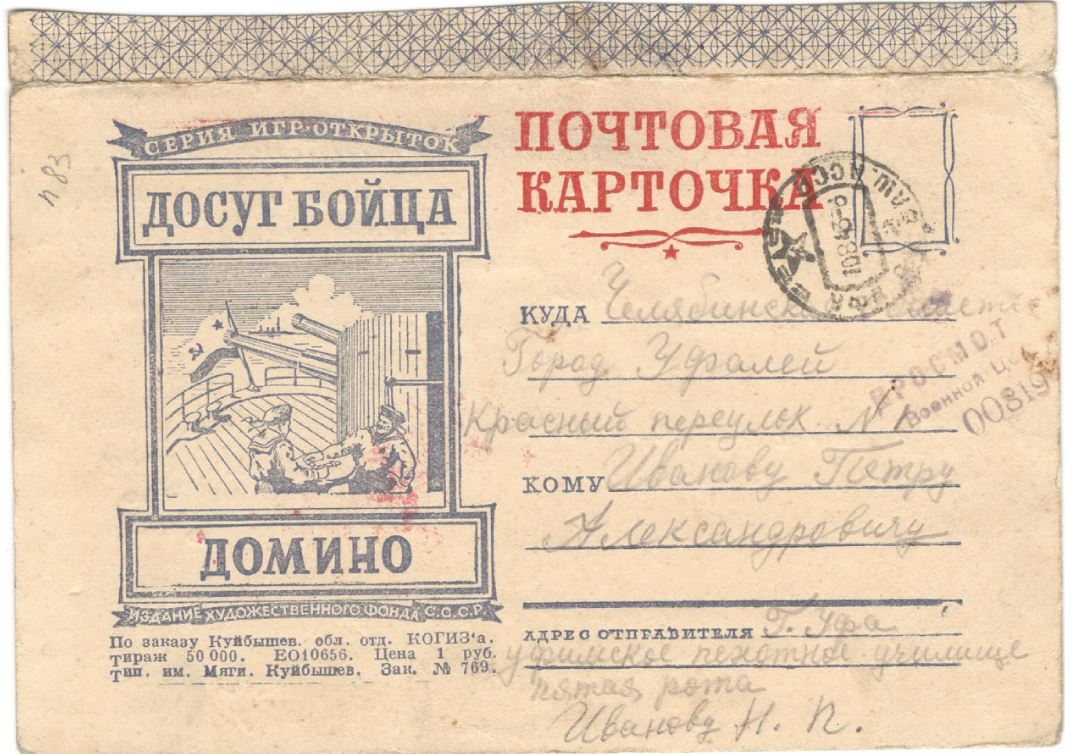 СЕРИЯ ИГР-ОТКРЫТОК
ДОСУГ БОЙЦА
ДОМИНО
ИЗДАНИЕ ХУДОЖЕСТВЕННОГО ФОНДА С.С.С.Р.
По заказу Куйбышев. обл. отд. КОГИЗ'а.
тираж 50 000. ЕО10656. Цена 1 руб.
тип. им. Мяги. Куйбышев. Зак. № 769.
ПОЧТОВАЯ
КАРТОЧКА
КУДА Челябинская область
Город Уфалей
Красный переулок N
КОМУ Иванову Петру
Александровичу
АДРЕС ОТПРАВИТЕЛЯ Г. Уфа
уфимское пехотное училище
пятая рота
Иванову Н. П.
УФА БАШ. АССР
ПРОСМОТ
Военной Цен
00819